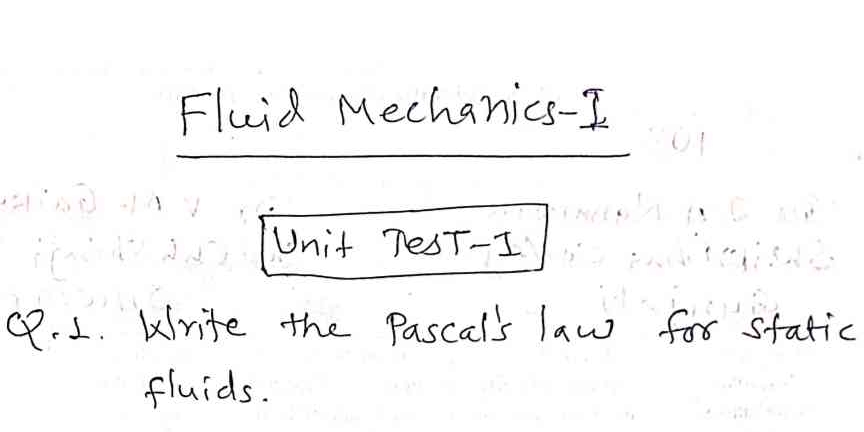 Fluid Mechanics-I
Unit Test-I
Q.1. Write the Pascal's law for static
fluids.